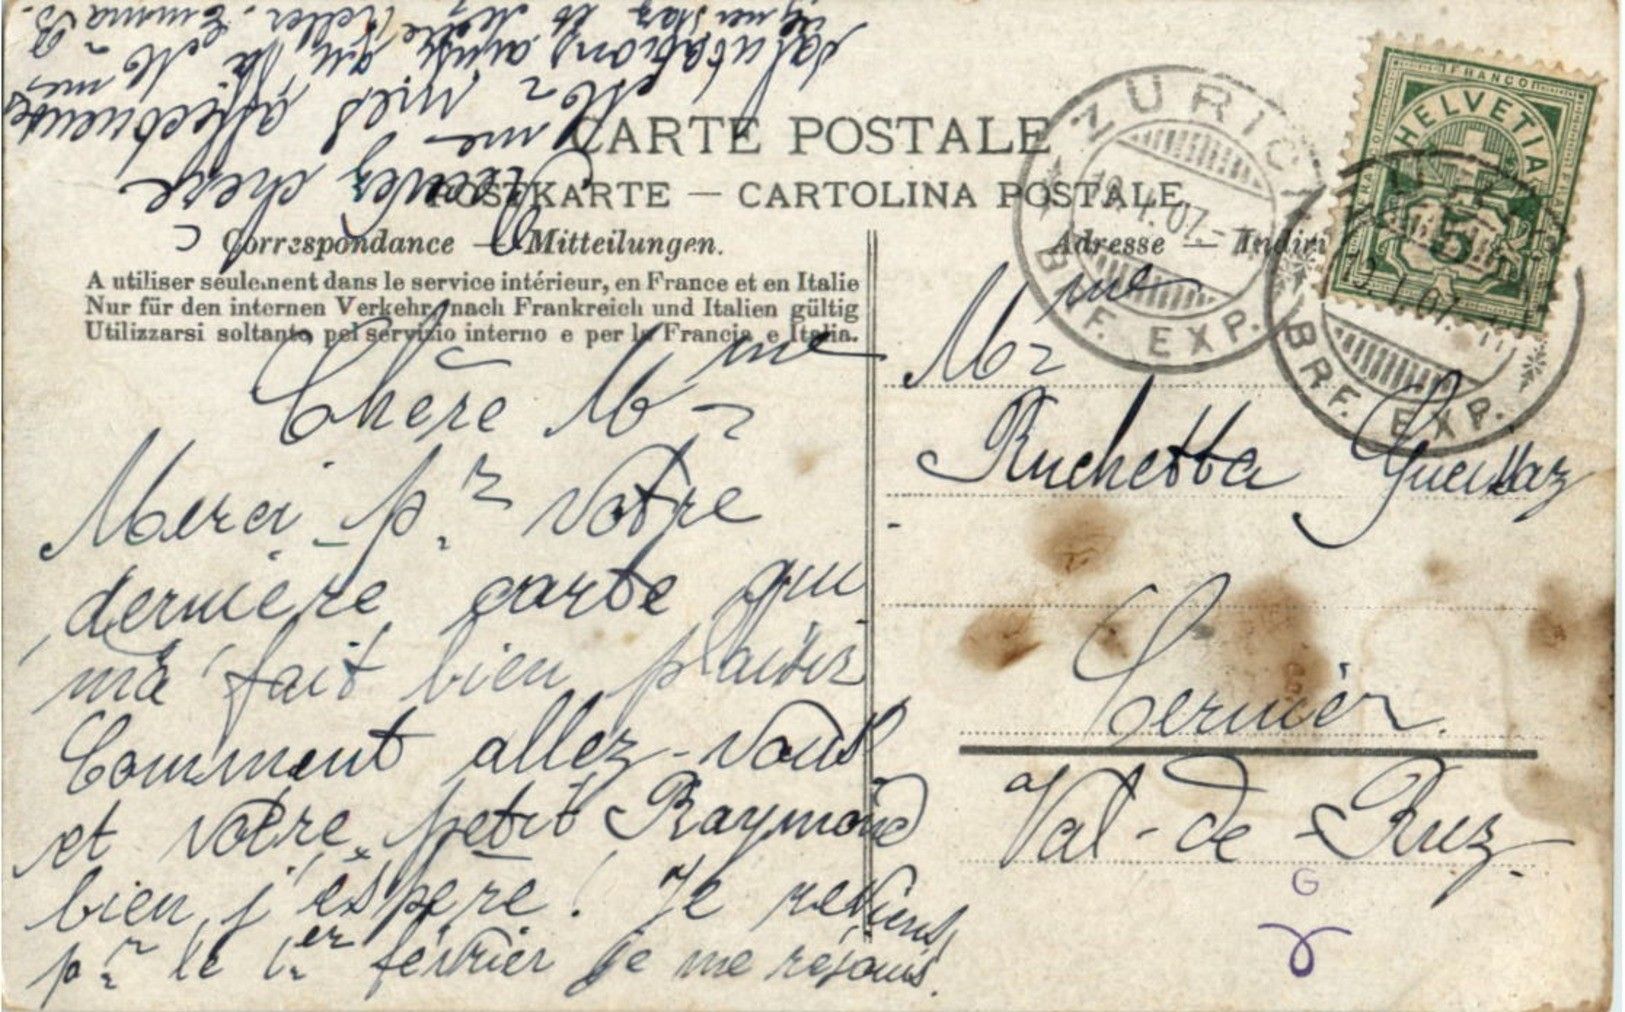 CARTE POSTALE
POSTKARTE — CARTOLINA POSTALE
Correspondance — Mitteilungen.
A utiliser seulement dans le service intérieur, en France et en Italie
Nur für den internen Verkehr, nach Frankreich und Italien gültig
Utilizzarsi soltanto pel servizio interno e per la Francia e Italia.
Chère Mme
Merci pr. votre
dernière carte qui
m'a fait bien plaisir
Comment allez-vous
et votre petit Raymond
bien, j'espère! Je reviens
pr. le 1er février je me réjouis.
Recevez chère
Mme mes affectueuses
salutations, ainsi qu'à Mme
et Mere Keller. Emma B.
Adresse — Indiri
Mme
Ruchetta Gueissaz
Cernier.
Val-de-Ruz.
FRANCO
HELVETIA
5
ZÜRICH
19.I.07.
BRF. EXP.
19.I.07.
BRF. EXP.